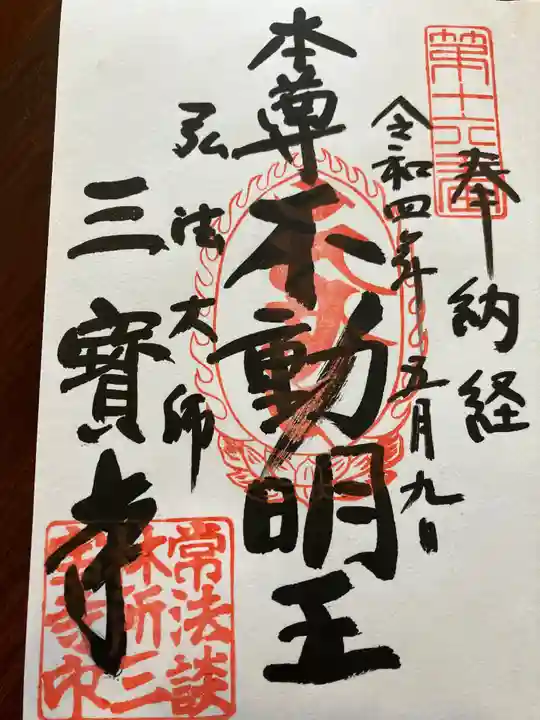 第十六番
奉納経
令和四年五月九日
本尊不動明王
弘法大師
三寳寺
常法談
林所三
寳寺印